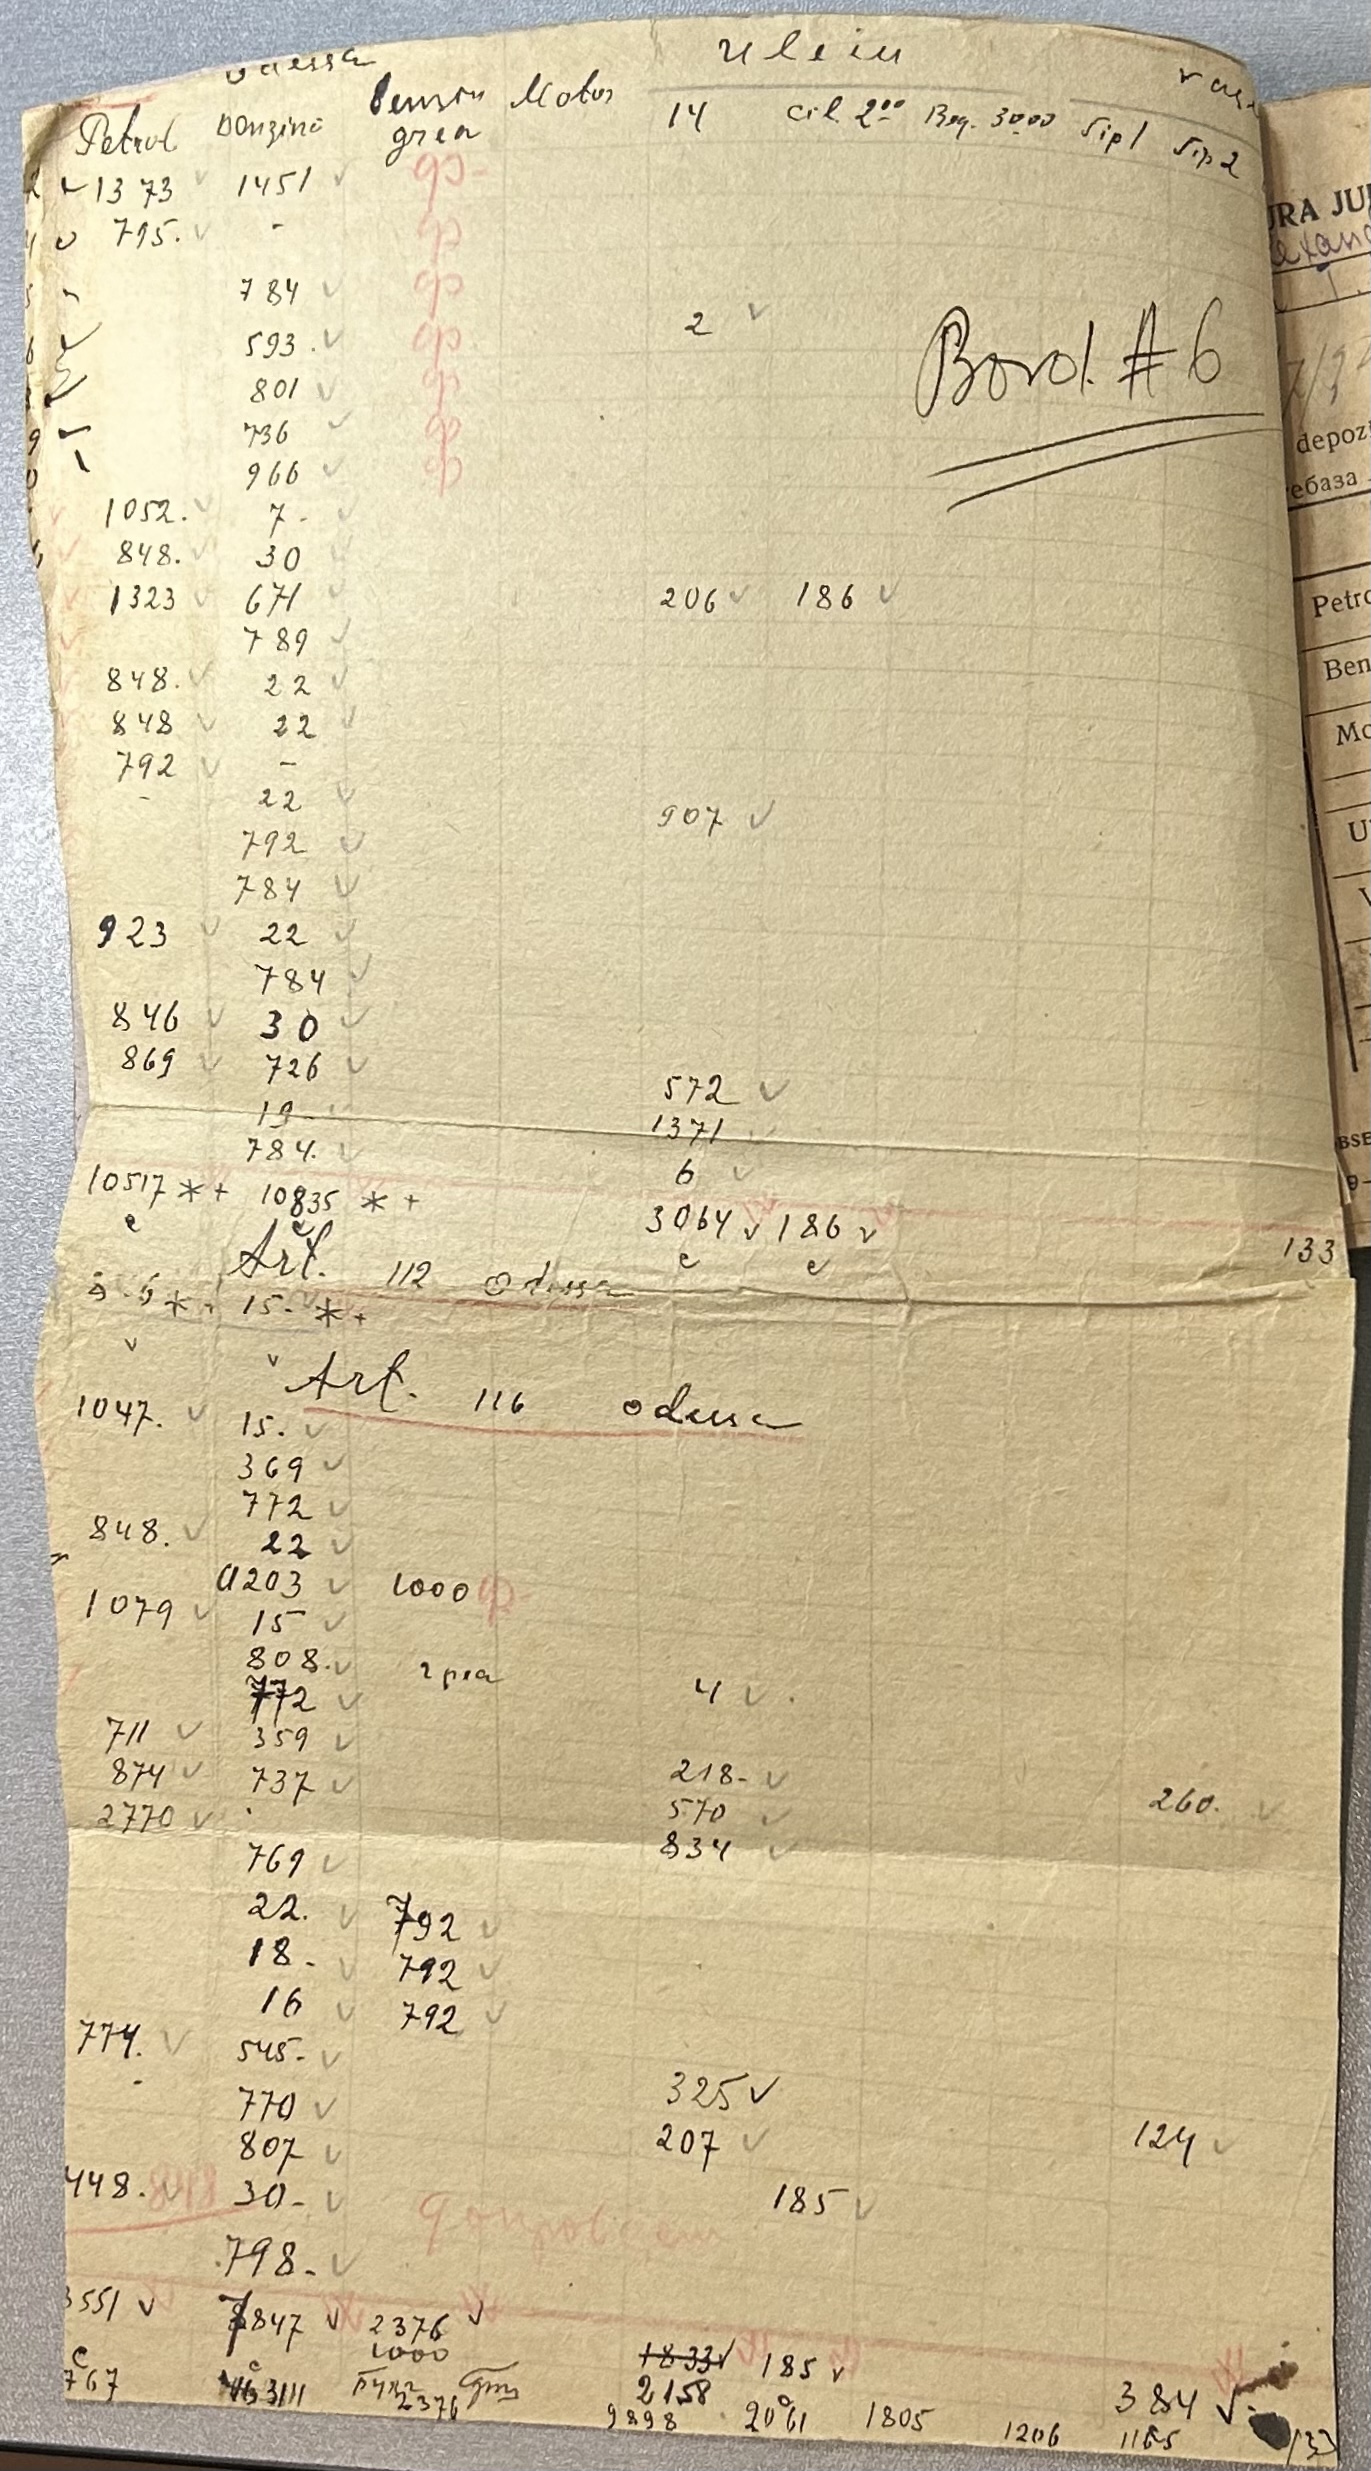 Odessa uleiu vase
Petrol Benzina Benzin grea Motor 14 cil 200 Reg. 3000 Tip 1 Tip 2
1373 1451 др-
795. - др
784 др
593. 2 др
Bord. #6
801 др
736 др
966 др
1052. 7-
848. 30
1323 671 206 186
789
848. 22
848 22
792 -
- 22 907
792
784
923 22
784
846 30
869 726 572
19- 1371
784. 6
10517 *+ 10835 *+ 3064 186 133
Art. 112 Odessa
15- *+
Art. 116 odessa
1047. 15.
369
772
848. 22
1203 1000
1079 15
808. грea
772 4
711 359
874 737 218- 260.
2770 570
769 834
22. 792
18. 792
16 792
774. 545-
- 770 325
807 207 124
448. 848 30- 185
798-
3551 7847 2376 1833 185
1000 2158 384
767 3111 2376 9898 2061 1805 1206 1165 133
URA JU
depozi
ебаза
Petro
Ben
Mo
U
V
BSE
9-